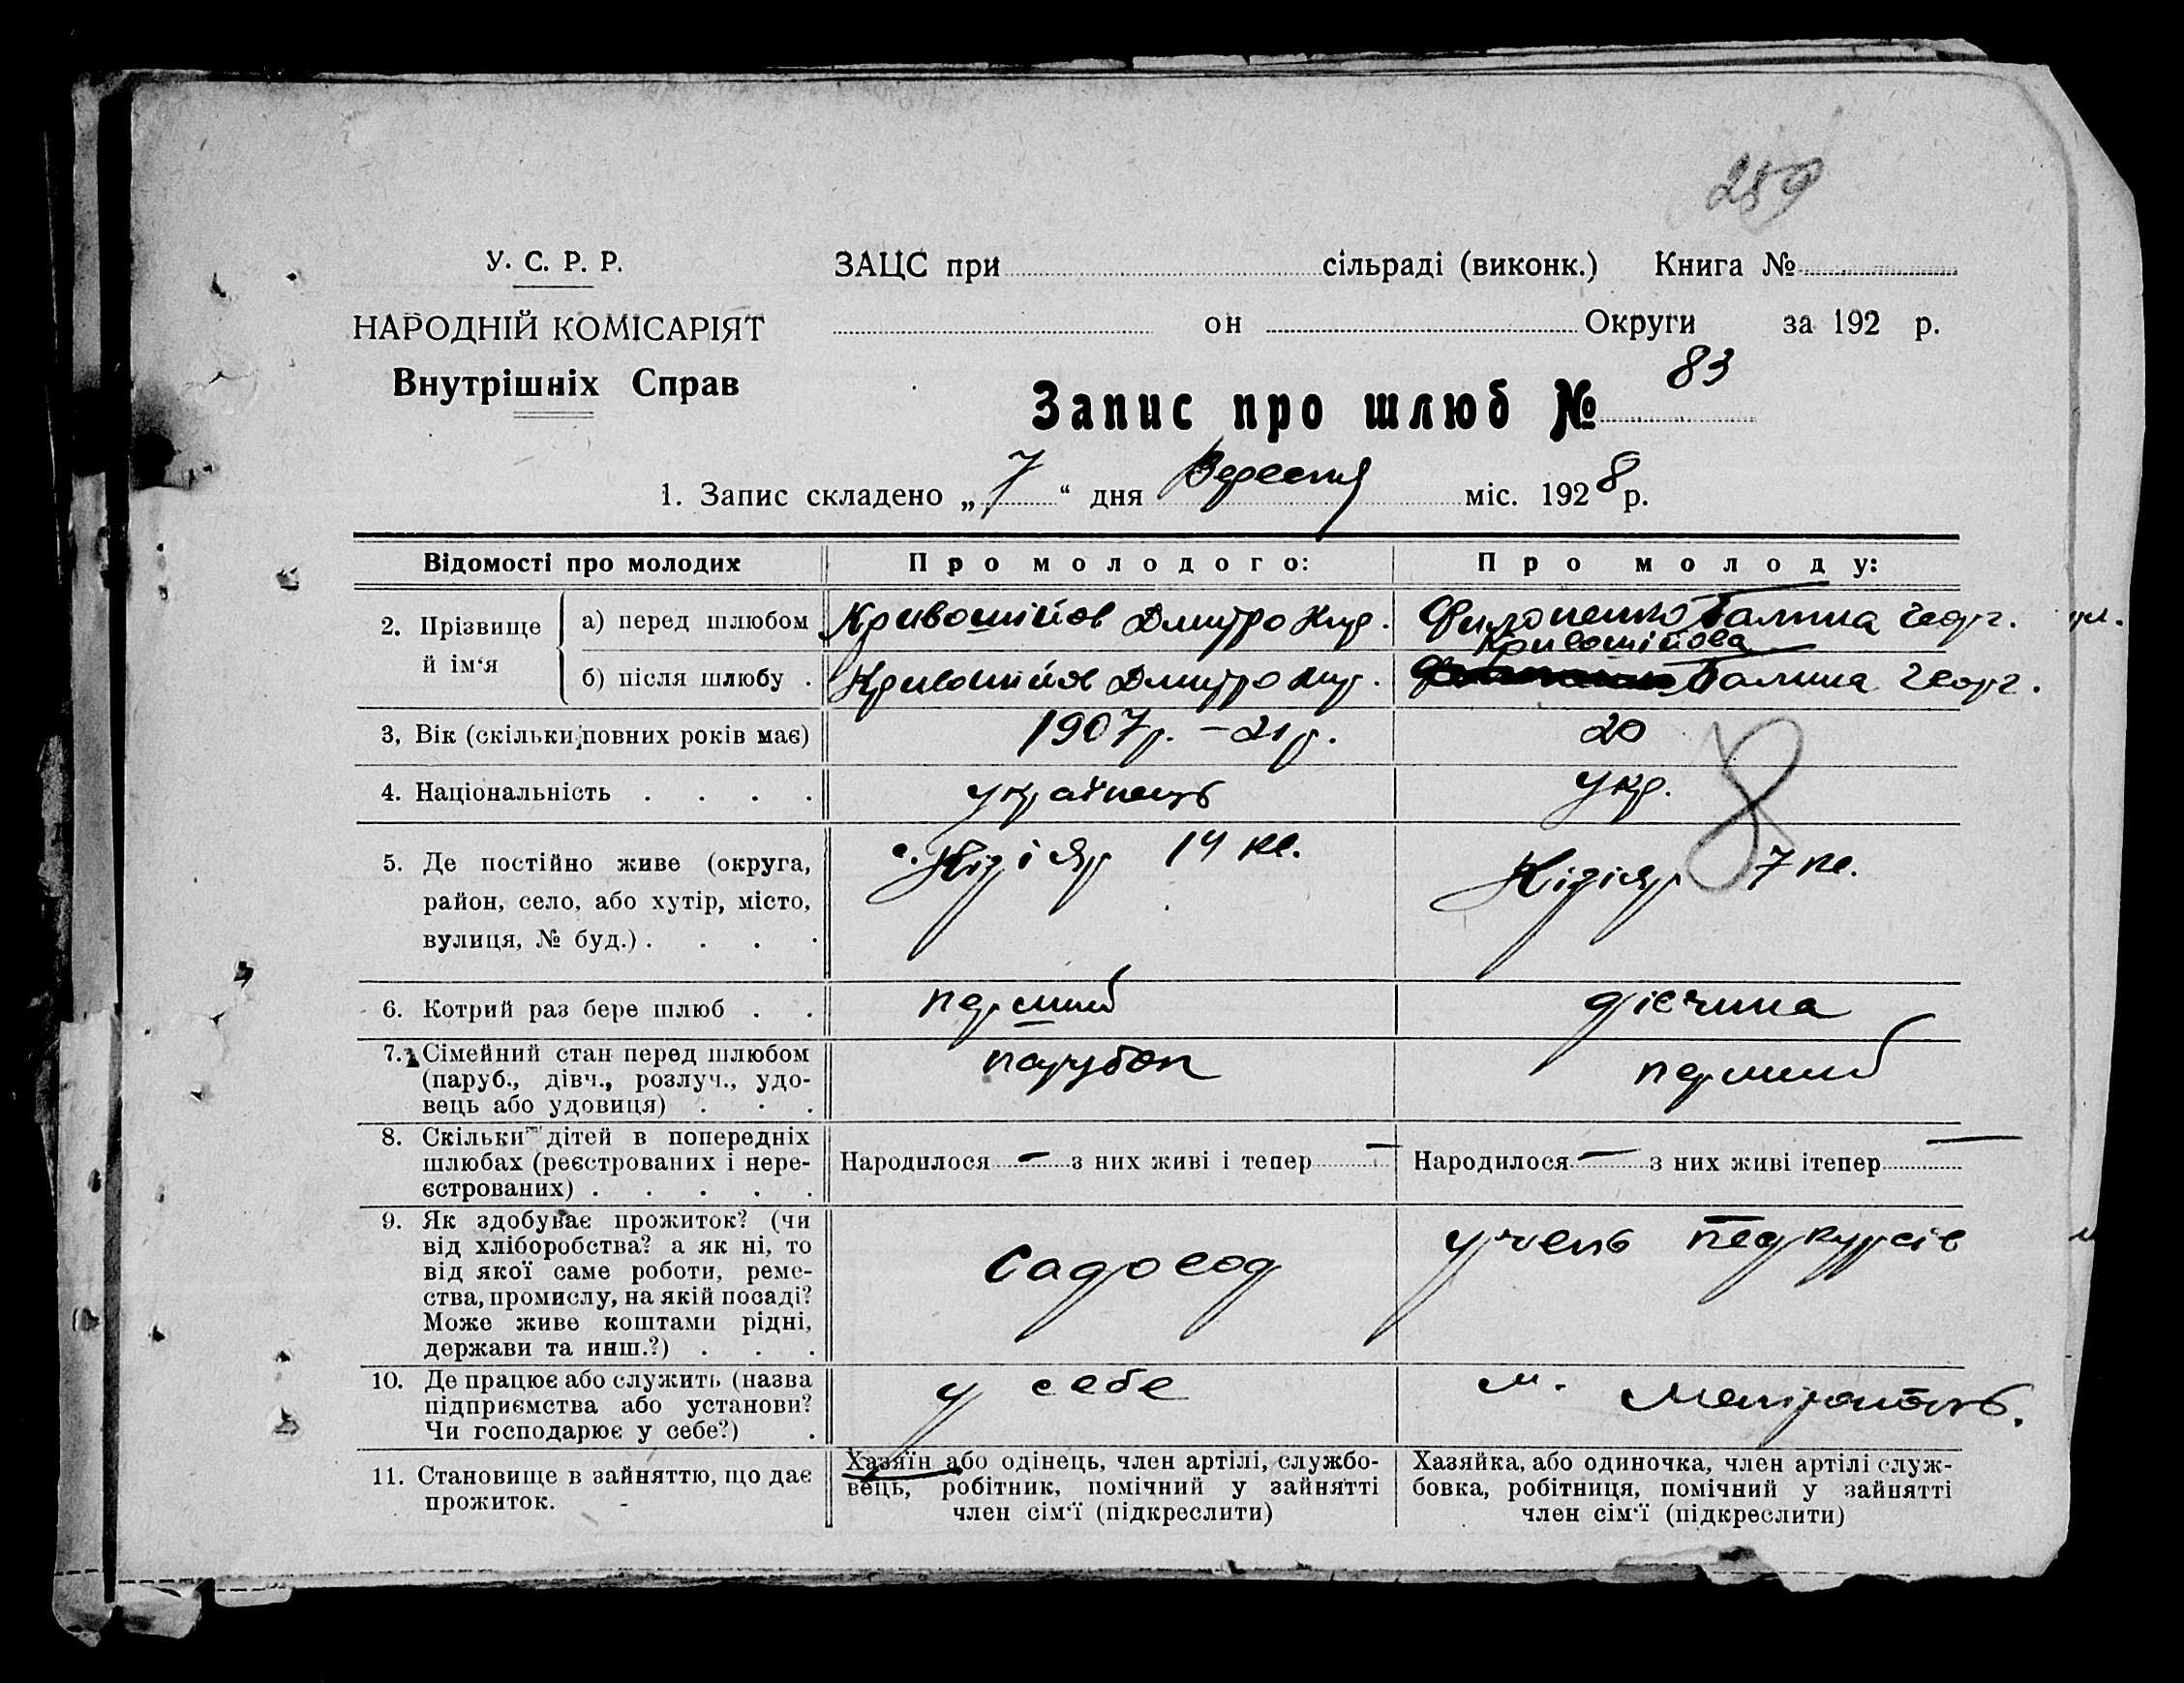 289
У. С. Р. Р.
НАРОДНІЙ КОМІСАРІЯТ
Внутрішніх Справ
ЗАЦС при сільраді (виконк.) Книга №
он Округи за 192 р.
Запис про шлюб № 83
1. Запис складено „ 7 “ дня Вересня міс. 1928 р.
Відомості про молодих Про молодого: Про молоду:
2. Прізвище й ім‘я
а) перед шлюбом Кривошійов Дмитро Кир. Филоненко Галина Георг.
Кривошійова
б) після шлюбу . Кривошійов Дмитро Кир. Галина Георг.
3, Вік (скільки повних років має) 1907 р. – 21 р. 20
4. Національність . . . . українець укр.
8
5. Де постійно живе (округа, с. Кізіяр 14 кв. Кізіяр 7 кв.
район, село, або хутір, місто,
вулиця, № буд.) . . . .
6. Котрий раз бере шлюб . . перший дівчина
7. Сімейний стан перед шлюбом парубок перший
(паруб., дівч., розлуч., удо-
вець або удовиця) . . .
8. Скільки дітей в попередніх
шлюбах (реєстрованих і нере- Народилося – з них живі і тепер – Народилося – з них живі ітепер –
єстрованих) . . . . .
9. Як здобуває прожиток? (чи
від хліборобства? а як ні, то садовод учень педкурсів
від якої саме роботи, реме-
ства, промислу, на якій посаді?
Може живе коштами рідні,
держави та инш.?) . . .
10. Де працює або служить (назва у себе м. Меліропіль.
підприємства або установи?
Чи господарює у себе?) .
11. Становище в зайняттю, що дає
прожиток. -
Хазяїн або одінець, член артілі, службо-
вець, робітник, помічний у зайнятті
член сім‘ї (підкреслити)
Хазяйка, або одиночка, член артілі служ-
бовка, робітниця, помічний у зайнятті
член сім‘ї (підкреслити)